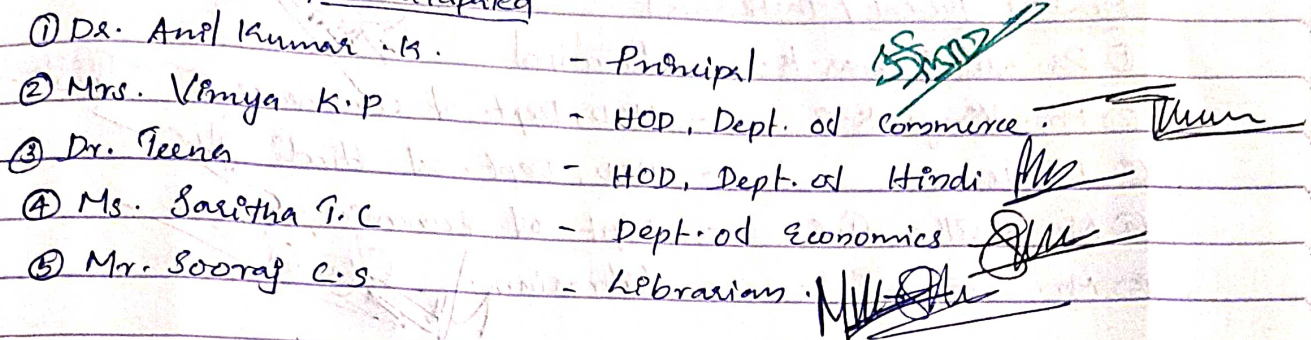 ① Dr. Anil Kumar .K. - Principal
② Mrs. Vimya K.P - HOD, Dept. od Commerce.
③ Dr. Teena - HOD, Dept. od Hindi
④ Ms. Saritha T.C - Dept. od Economics
⑤ Mr. Sooraj C.S. - Librarian.